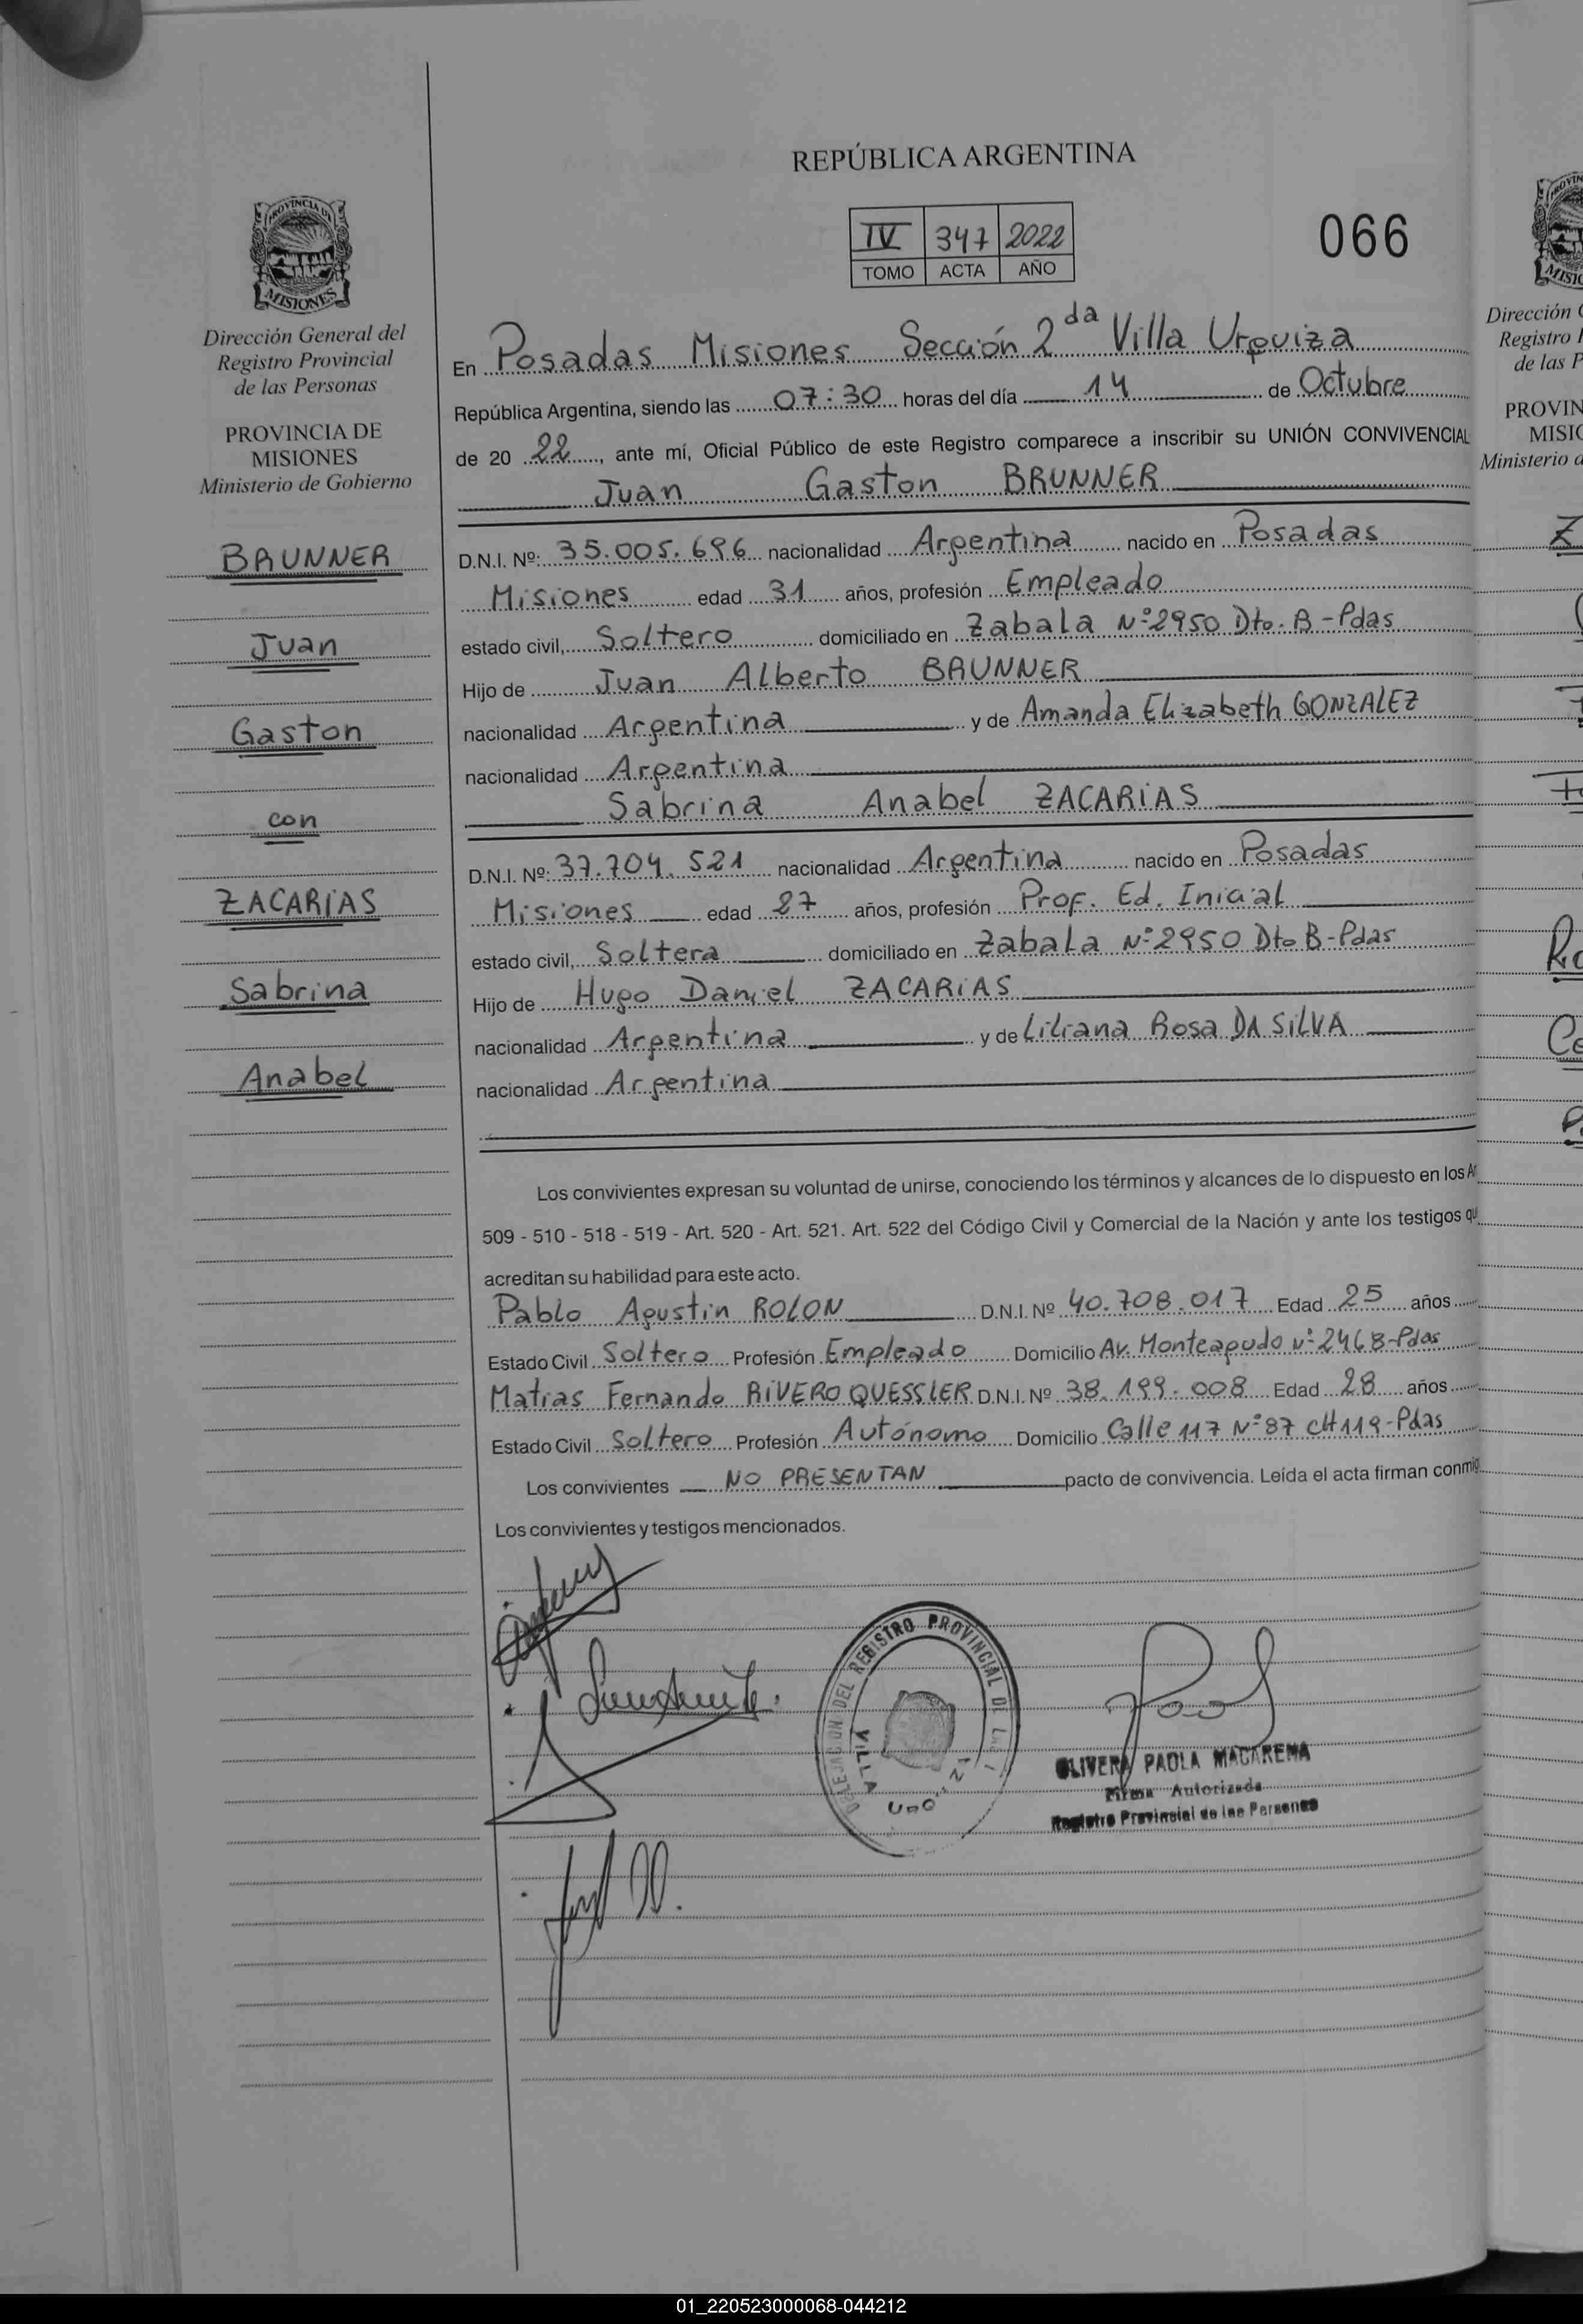 REPÚBLICA ARGENTINA
IV 347 2022
TOMO ACTA AÑO
066
PROVINCIA DE
MISIONES
Dirección General del
Registro Provincial
de las Personas
PROVINCIA DE
MISIONES
Ministerio de Gobierno
BRUNNER
Juan
Gaston
con
ZACARIAS
Sabrina
Anabel
En Posadas Misiones Sección 2da Villa Urquiza
República Argentina, siendo las 07:30 horas del día 14 de Octubre
de 20 22, ante mí, Oficial Público de este Registro comparece a inscribir su UNIÓN CONVIVENCIAL
Juan Gaston BRUNNER
D.N.I. Nº: 35.005.696 nacionalidad Argentina nacido en Posadas
Misiones edad 31 años, profesión Empleado
estado civil, Soltero domiciliado en Zabala Nº2950 Dto. B - Pdas
Hijo de Juan Alberto BRUNNER
nacionalidad Argentina y de Amanda Elizabeth GONZALEZ
nacionalidad Argentina
Sabrina Anabel ZACARIAS
D.N.I. Nº: 37.704.521 nacionalidad Argentina nacido en Posadas
Misiones edad 27 años, profesión Prof. Ed. Inicial
estado civil, Soltera domiciliado en Zabala Nº2950 Dto B - Pdas
Hijo de Hugo Daniel ZACARIAS
nacionalidad Argentina y de Liliana Rosa DA SILVA
nacionalidad Argentina
Los convivientes expresan su voluntad de unirse, conociendo los términos y alcances de lo dispuesto en los
509 - 510 - 518 - 519 - Art. 520 - Art. 521. Art. 522 del Código Civil y Comercial de la Nación y ante los testigos
acreditan su habilidad para este acto.
Pablo Agustin ROLON D.N.I. Nº 40.708.017 Edad 25 años
Estado Civil Soltero Profesión Empleado Domicilio Av. Monteagudo Nº 2468-Pdas
Matias Fernando RIVERO QUESSLER D.N.I. Nº 38.199.008 Edad 28 años
Estado Civil Soltero Profesión Autónomo Domicilio Calle 117 Nº 87 CH119-Pdas
Los convivientes NO PRESENTAN pacto de convivencia. Leída el acta firman
Los convivientes y testigos mencionados.
DELEGACION DEL REGISTRO PROVINCIAL DE
VILLA
OLIVERA PAOLA MACARENA
Firma Autorizada
Registro Provincial de las Personas
Dirección
Registro
de las
Ministerio
01_220523000068-044212